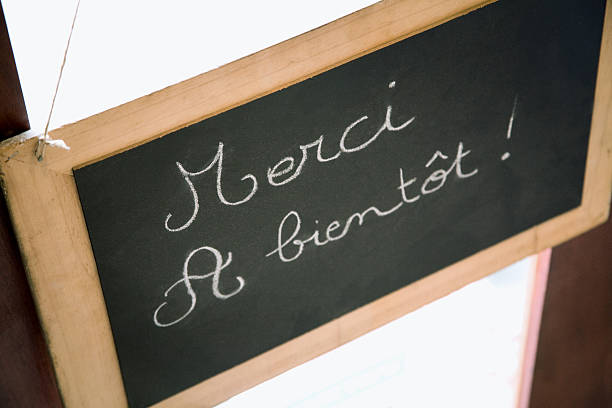 Merci
A bientôt !